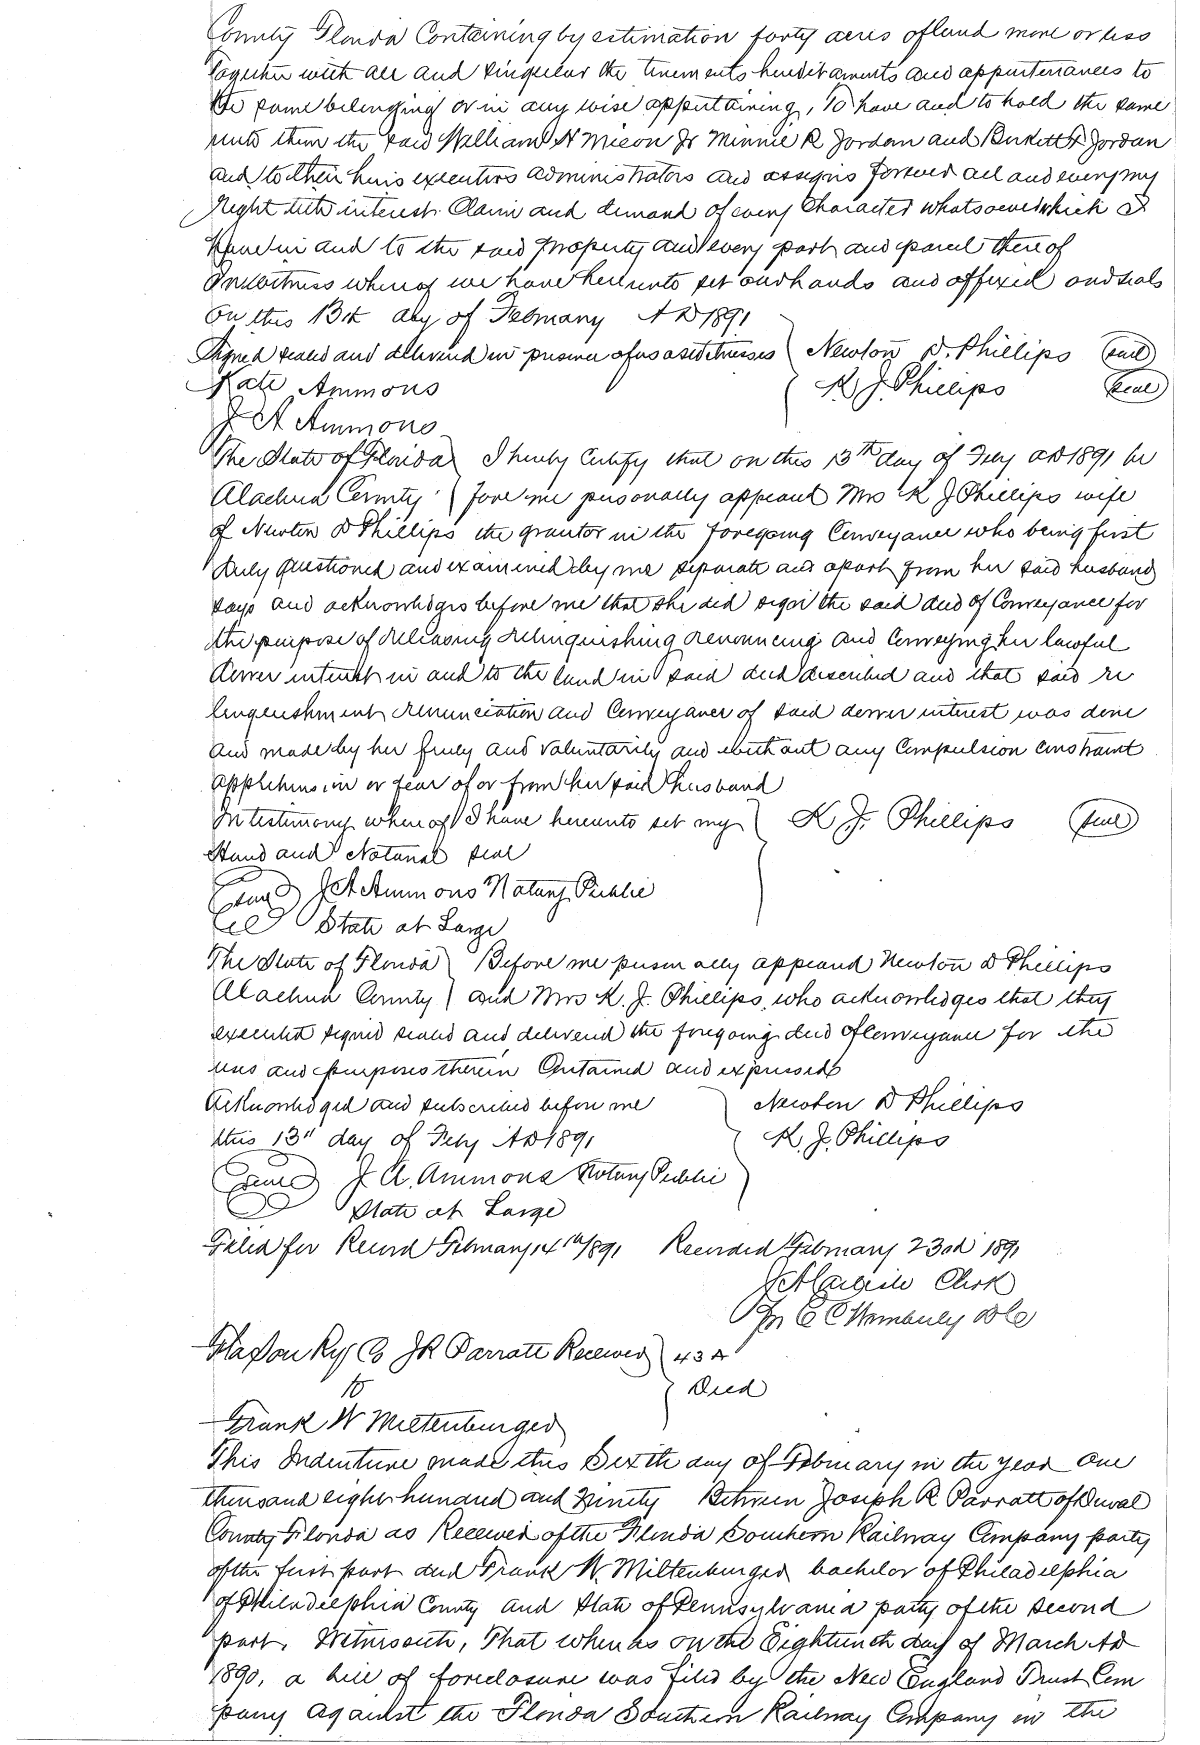 County Florida Containing by estimation forty acres of land more or less
together with all and singular the tenements hereditaments and appurtenances to
the same belonging or in any wise appertaining, To have and to hold the same
unto them the said William N Mixon Jr Minnie R Jordan and Burkett F Jordan
and to their heirs executors administrators and assigns forever all and every my
Right title interest Claim and demand of every Character whatsoever which I
have in and to the said property and every part and parcel there of
In witness where of we have hereunto set our hands and affixed our seals
On this 13th day of February A D 1891
Signed sealed and delivered in presence of us as witnesses Newton D. Phillips seal
Kate Ammons K J. Phillips seal
J A Ammons
The State of Florida I hereby Certify that on this 13th day of Feby AD 1891 be
Alachua County fore me personally appeared Mrs K J Phillips wife
of Newton D Phillips the grantor in the foregoing Conveyance who being first
duly questioned and examined by me separate and apart from her said husband
says and acknowledges before me that she did sign the said deed of Conveyance for
the purpose of releasing relinquishing renouncing and Conveying her lawful
dower interest in and to the land in said deed described and that said re
linquishment renunciation and Conveyance of said dower interest was done
and made by her freely and voluntarily and without any Compulsion Constraint
apprehension or fear of or from her said husband
In testimony where of I have hereunto set my K J. Phillips seal
Hand and Notarial seal
seal J A Ammons Notary Public
State at Large
The State of Florida Before me personally appeared Newton D Phillips
Alachua County and Mrs K. J. Phillips, who acknowledges that they
executed signed sealed and delivered the foregoing deed of Conveyance for the
uses and purposes therein Contained and expressed
Acknowledged and subscribed before me Newton D Phillips
this 13" day of Feby AD 1891 K. J. Phillips
seal J A. Ammons Notary Public
State at Large
Filed for Record February 14th 1891 Recorded February 23rd 1891
J A Carlisle Clerk
Per E C D C
Fla Sou Ry Co J R Parrott Receiver 43 A
to Deed
Frank W Miltenburger
This Indenture made this Sixth day of February in the year One
thousand eight hundred and Ninety Between Joseph R Parrott of Duval
County Florida as Receiver of the Florida Southern Railway Company party
of the first part and Frank W. Miltenburger bachelor of Philadelphia
of Philadelphia County and State of Pennsylvania party of the second
part, Witnesseth, That whereas on the Eighteenth day of March AD
1890, a bill of foreclosure was filed by the New England Trust Com
pany against the Florida Southern Railway Company in the